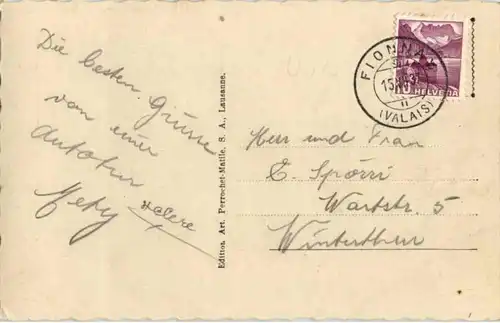 Die besten Grüsse
von einer
Autotour
Edition. Art. Perrochet-Matile, S. A., Lausanne.
FIONNAY
(VALAIS)
HELVETIA
10
Herr und Frau
E. Spörri
Wartstr. 5
Winterthur